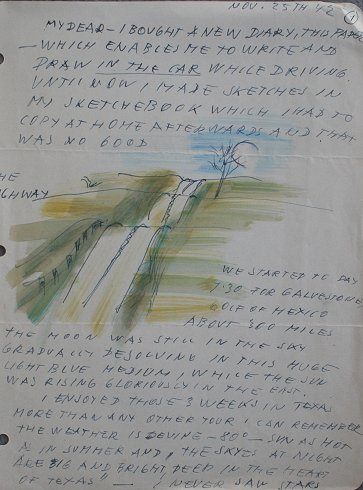 NOV. 25TH 42 1
MY DEAR - I BOUGHT A NEW DIARY, THIS PAPER
- WHICH ENABLES ME TO WRITE AND
DRAW IN THE CAR WHILE DRIVING.
UNTIL NOW I MADE SKETCHES IN
MY SKETCHEBOOK WHICH I HAD TO
COPY AT HOME AFTERWARDS AND THAT
WAS NO GOOD
THE
HIGHWAY
WE STARTED TO DAY
7:30 FOR GALVESTONE
GOLF OF MEXICO
ABOUT 300 MILES
THE MOON WAS STILL IN THE SKY
GRADUALLY DESOLVING IN THIS HUGE
LIGHT BLUE MEDIUM, WHILE THE SUN
WAS RISING GLORIOUSLY IN THE EAST.
I ENJOYED THOSE 3 WEEKS IN TEXAS
MORE THAN ANY OTHER TOUR I CAN REMEMBER
THE WEATHER IS DEVINE - 80° - SUN AS HOT
AS IN SUMMER AND "THE SKYES AT NIGHT
ARE BIG AND BRIGHT, DEEP IN THE HEART
OF TEXAS" - I NEVER SAW STARS